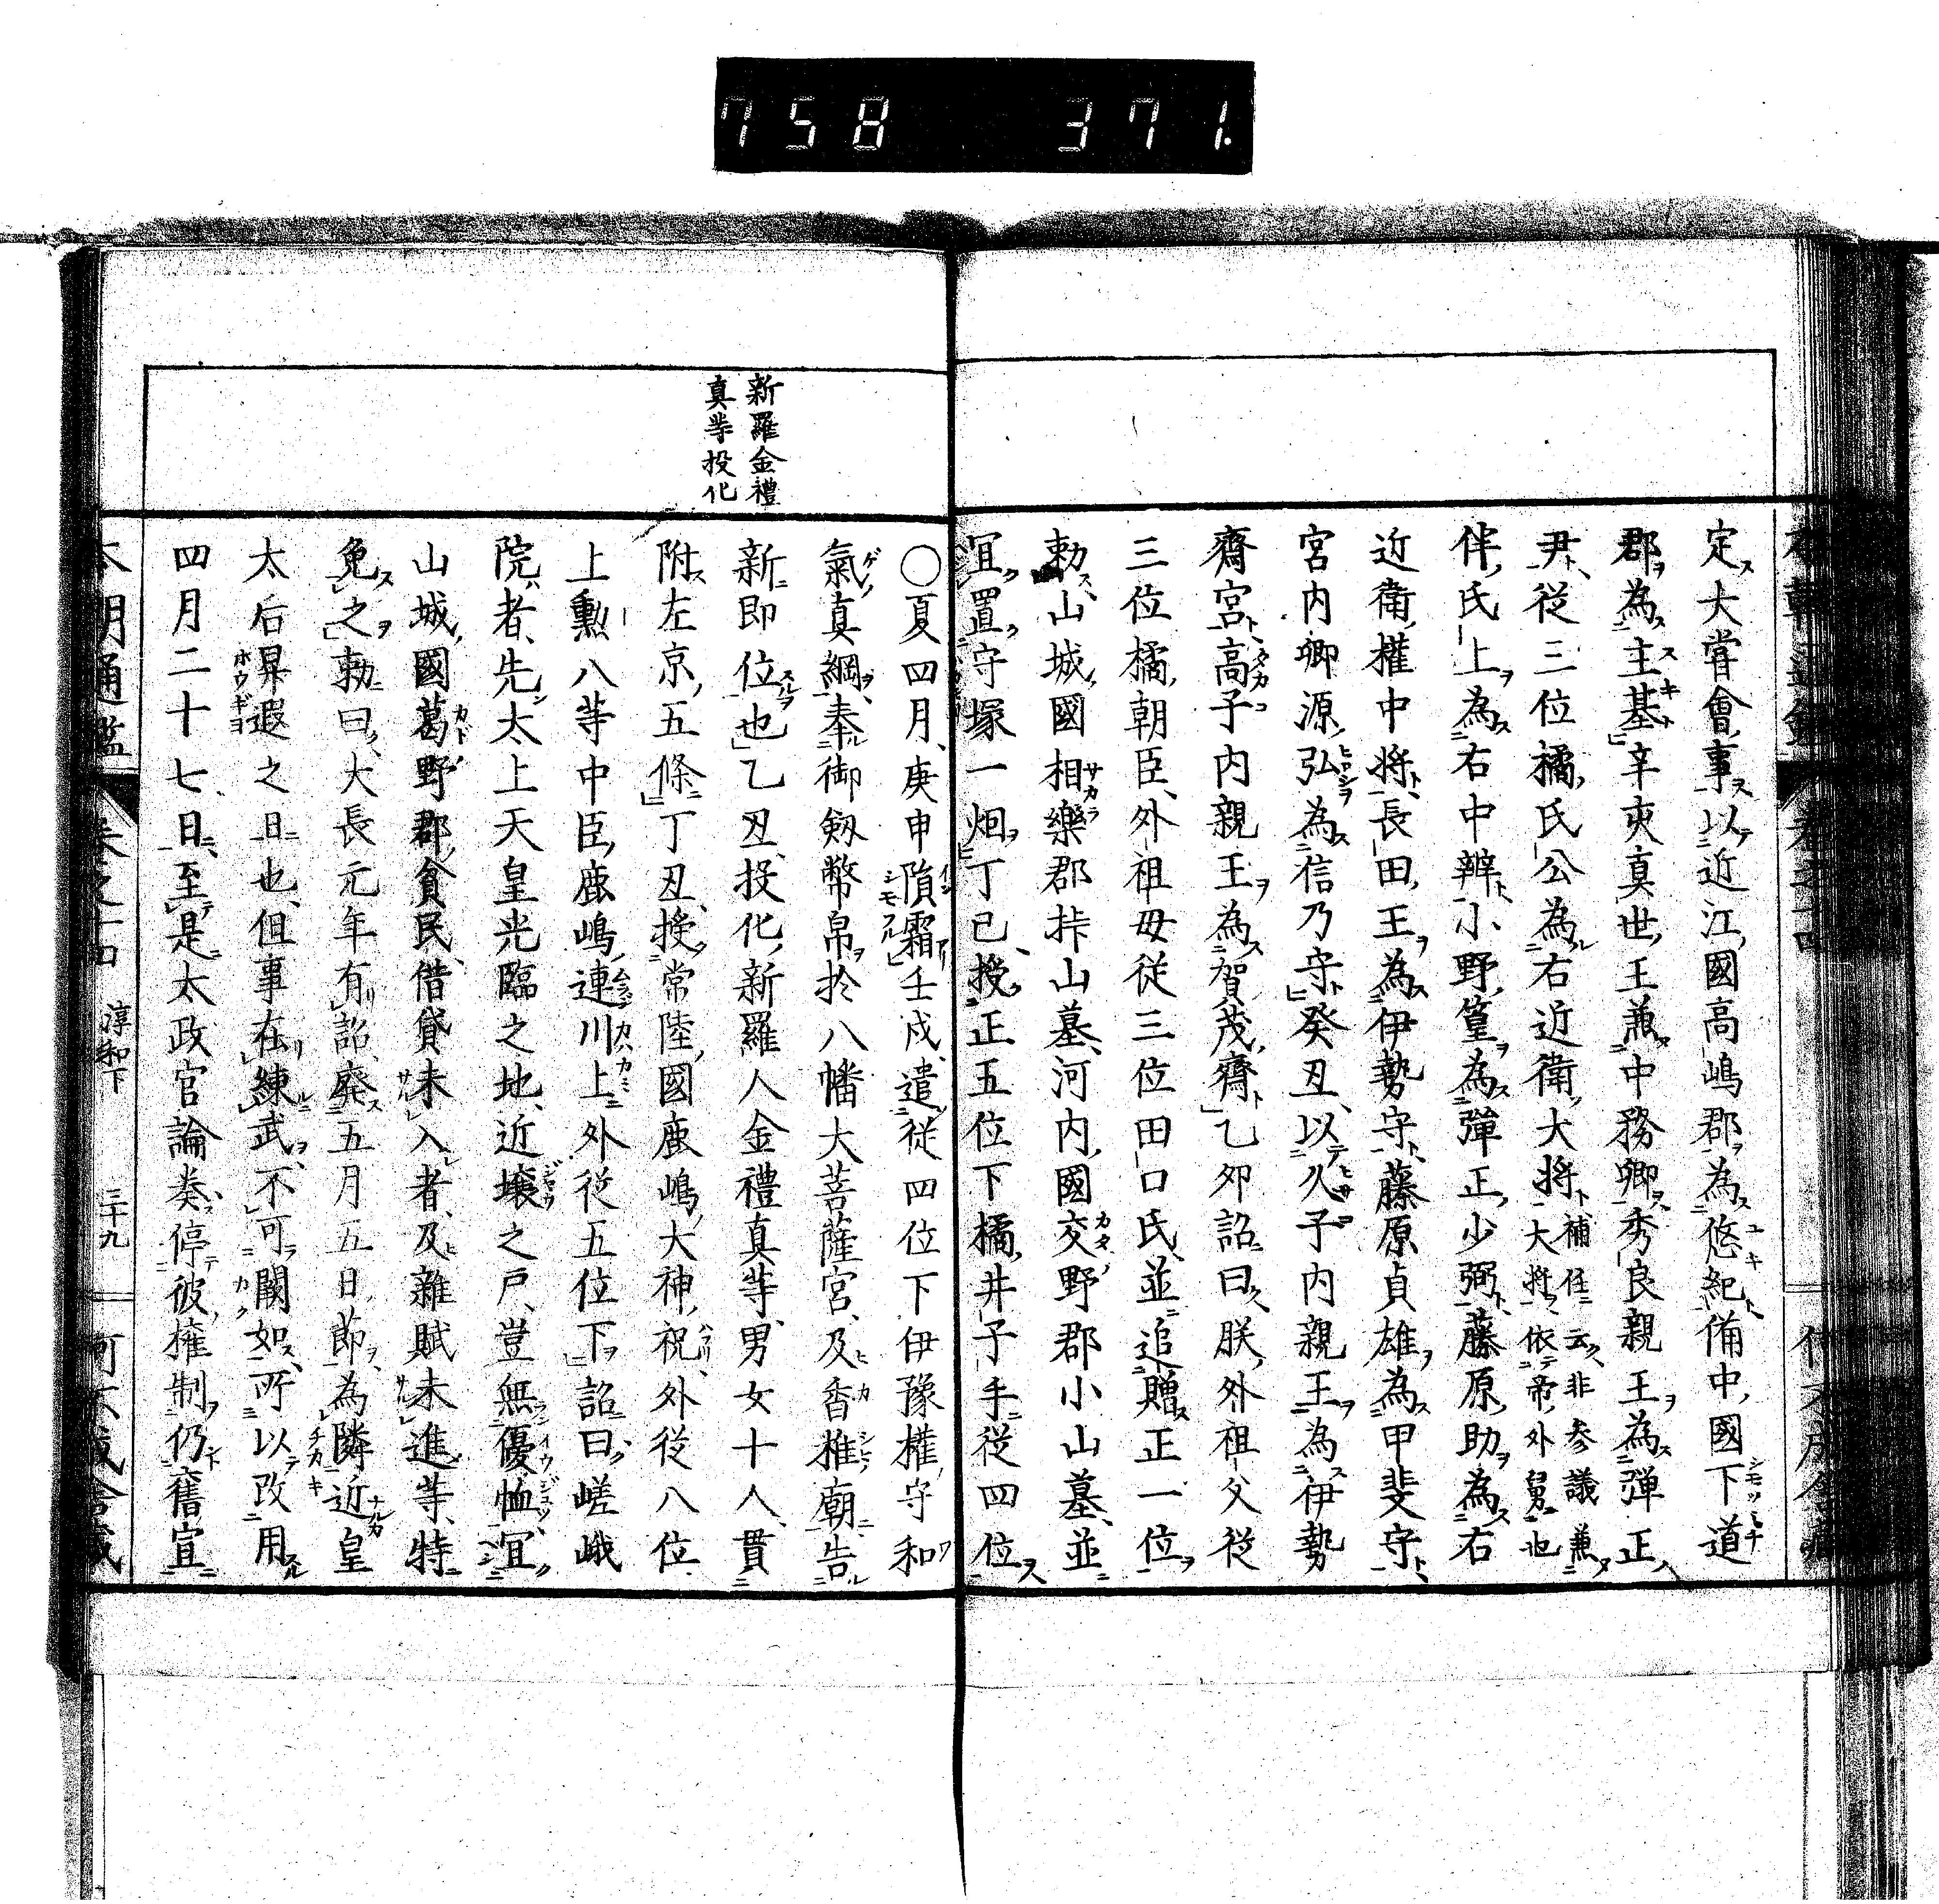 758 371
定大嘗會事以近江國高嶋郡為悠紀備中國下道
郡為主基辛亥真世王兼中務卿秀良親王為弾正
尹従三位橘氏公為右近衛大将補任云非参議兼大将依帝外舅也
伴氏上為右中辨小野篁為彈正少弼藤原助為右
近衛權中将長田王為伊勢守藤原貞雄為甲斐守
宮内卿源弘為信乃守癸丑以久子内親王為伊勢
齋宮高子内親王為賀茂齋乙卯詔曰朕外祖父従
三位橘朝臣外祖母従三位田口氏並追贈正一位
勅山城國相樂郡挊山墓河内國交野郡小山墓並
宜置守塚一烟丁巳授正五位下橘井子手従四位
新羅金禮
真等投化
〇夏四月庚申隕霜壬戌遣従四位下伊豫權守和
氣真綱奉御劔幣帛於八幡大菩薩宮及香推廟告
新即位也乙丑投化新羅人金禮真等男女十人貫
附左京五條丁丑授常陸國鹿嶋大神祝外従八位
上勲八等中臣鹿嶋連川上外従五位下詔曰嵯峨
院者先太上天皇光臨之地近壌之戸豈無優恤宜
山城國葛野郡貧民借貸未入者及雜賦未進等特
免之勅曰大長元年有詔廃五月五日節為隣近皇
太后昇遐之日也但事在練武不可闕如所以改用
四月二十七日至是太政官論奏停彼權制仍舊宣
本朝通鑑 卷之十四 淳和下 三十九